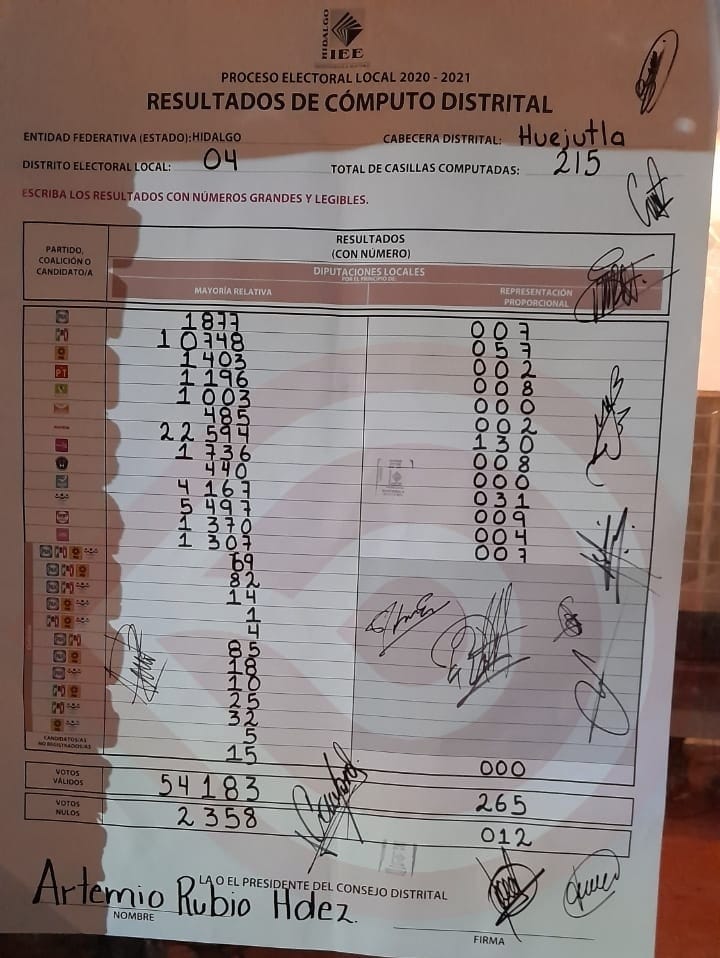 HIDALGO
IEE
PROCESO ELECTORAL LOCAL 2020 - 2021
RESULTADOS DE CÓMPUTO DISTRITAL
ENTIDAD FEDERATIVA (ESTADO): HIDALGO CABECERA DISTRITAL: Huejutla
DISTRITO ELECTORAL LOCAL: 04 TOTAL DE CASILLAS COMPUTADAS: 215
ESCRIBA LOS RESULTADOS CON NÚMEROS GRANDES Y LEGIBLES.
PARTIDO, COALICIÓN O CANDIDATO/A
RESULTADOS
(CON NÚMERO)
DIPUTACIONES LOCALES
POR EL PRINCIPIO DE:
MAYORÍA RELATIVA REPRESENTACIÓN PROPORCIONAL
1877 007
10748 057
1403 002
PT 1196 008
1003 000
485 002
22594 130
1736 008
440 000
4167 031
5497 009
1370 004
1307 007
69
82
14
1
4
85
18
18
25
32
5
CANDIDATOS/AS NO REGISTRADOS/AS 15 000
VOTOS VÁLIDOS 54183 265
VOTOS NULOS 2358 012
LA O EL PRESIDENTE DEL CONSEJO DISTRITAL
Artemio Rubio Hdez.
NOMBRE FIRMA